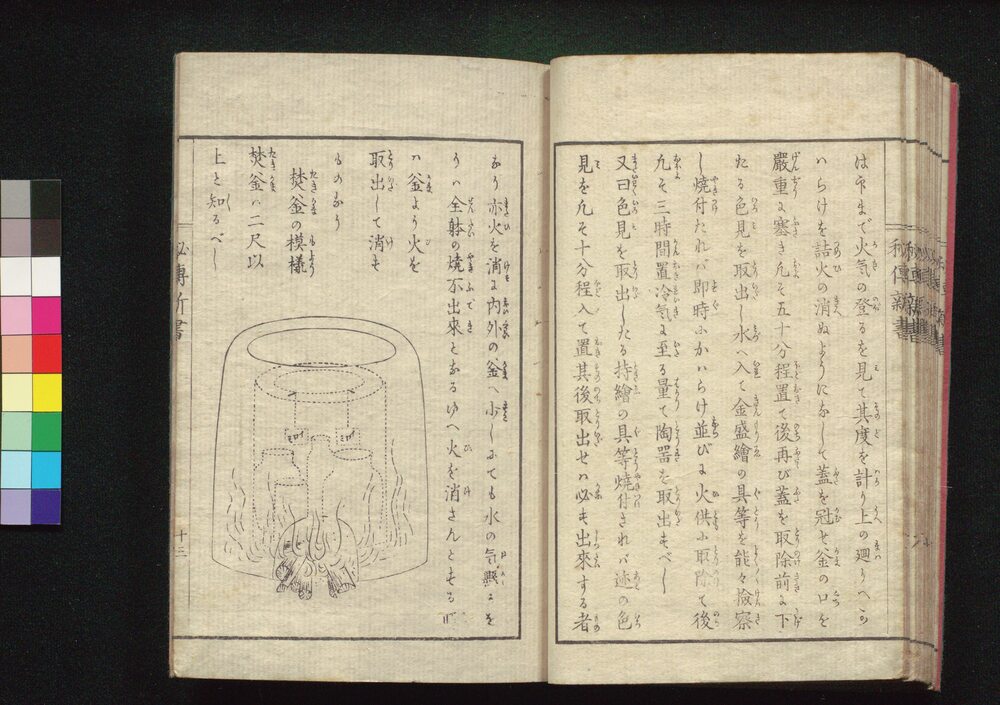 は下まで火気の登るを見て其度を計り上の廻りへか
ハらけを詰火の消ぬようになして蓋を冠せ釜の口を
嚴重に塞き凡そ五十分程置て後再び蓋を取除前に下
たる色見を取出し水へ入て金盛繪の具等を能々檢察
し焼付たれバ即時にかハらけ並びに火供に取除て後
凡そ三時間置冷気に至る量て陶噐を取出すべし
又曰色見を取出したる持繪の具等焼付されバ迹の色
見を凡そ十分程入て置其後取出せハ必す出來する者
なり亦火を消に内外の釜へ少しにても水の気與を
うハ全躰の焼不出來となるゆへ火を消さんとする
ハ釜より火を
取出して消す
ものなり
焚釜の模様
焚釜ハ二尺以
上と知るべし
必傳新書
十三
秘傳新書